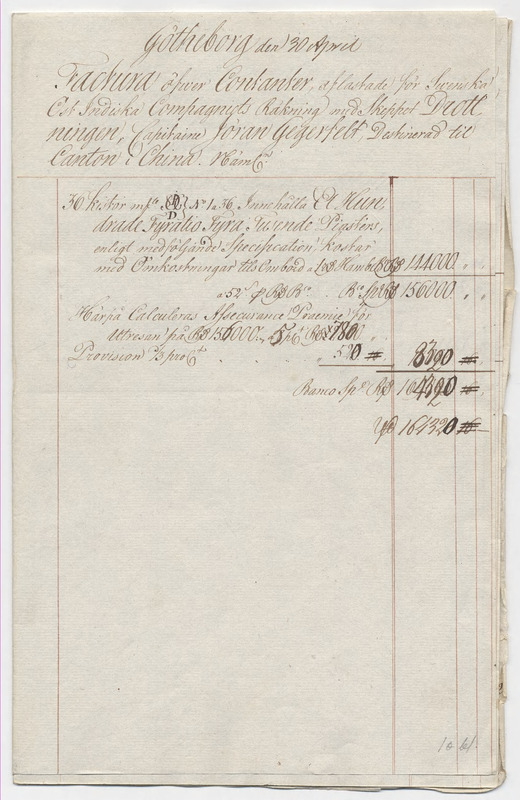 Götheborg den 30 April
Factura öfwer Contanter, aflastade för Swenska
Ost Indiska Compagniets Räkning med Skeppet Drott
ningen, Capitaine Jöran Gegerfelt, Destinerad til
Canton i China.
36 kistor N° 1 a 36 Innehålla Et Hun
drade Fyratio Fyra Tusende Piastres,
enligt medföljande Specification, kostar
med Omkostningar til Ombord 144000
a 52 156000
Härpå Calculeras Assecurance Præmie för
Utresan på 156000 5 pCt 7800
Provision ⅓ pro Ct 520 8320
Banco Sp 164320
164320